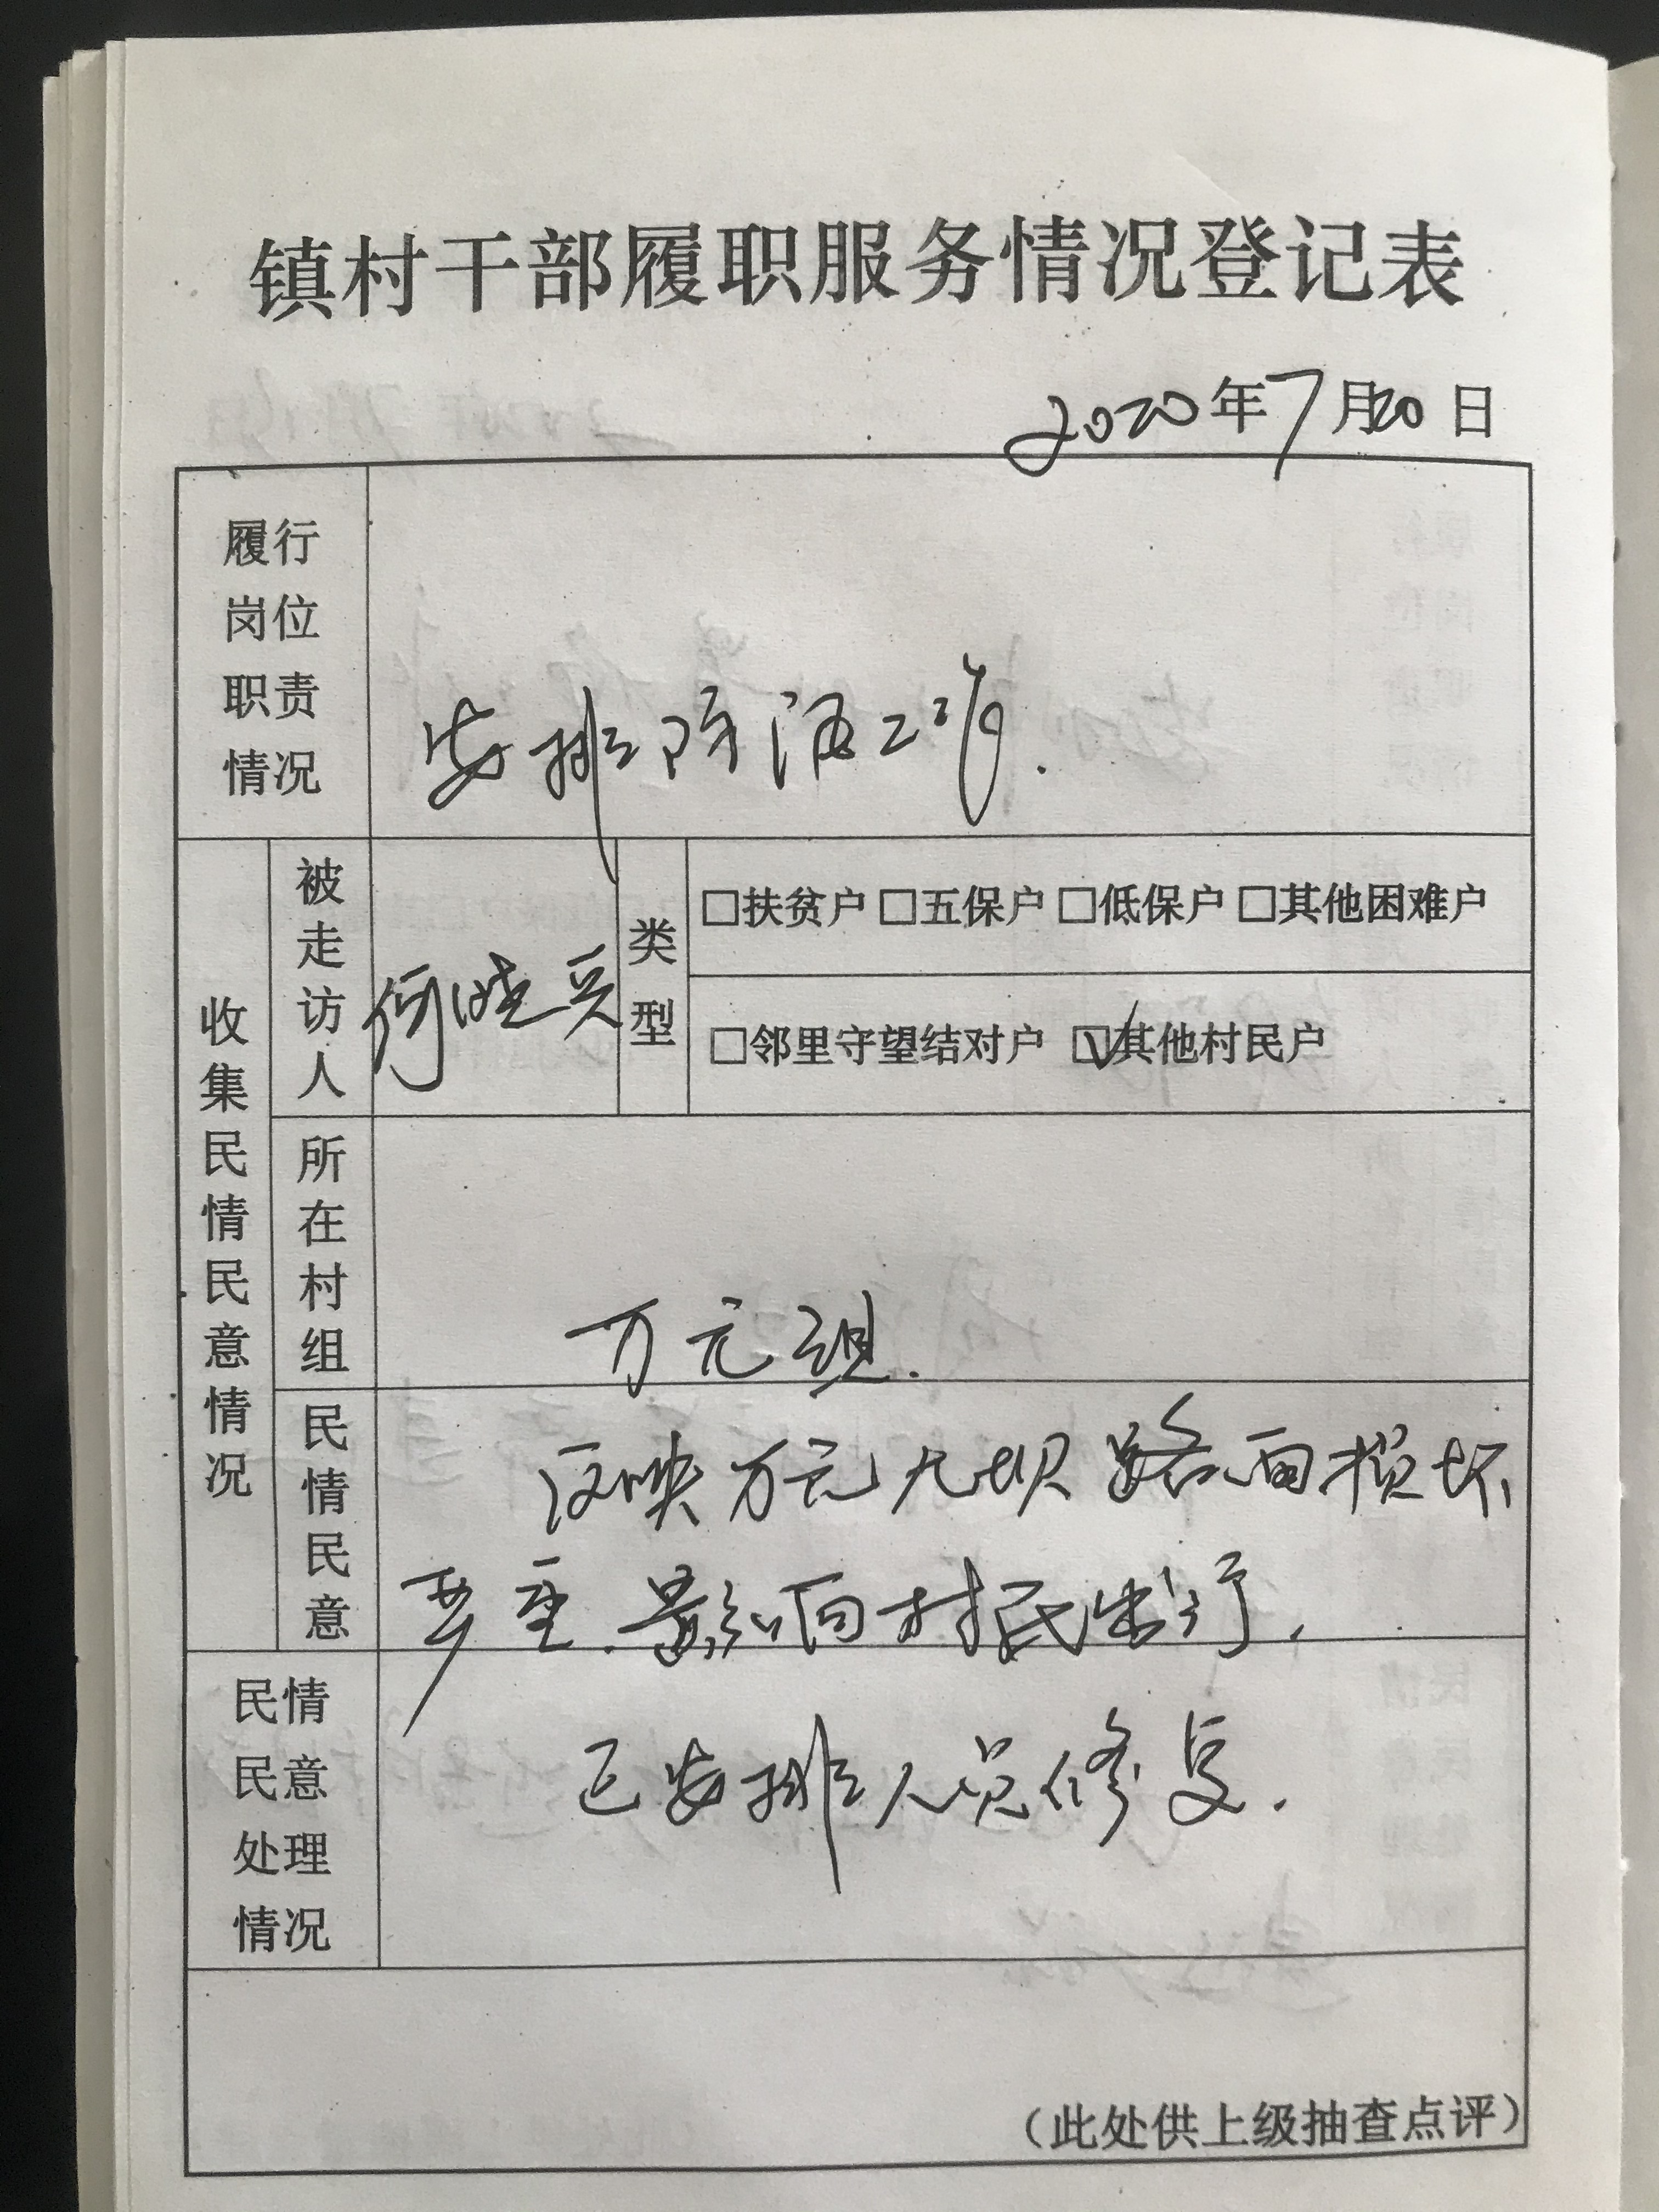 镇村干部履职服务情况登记表
2020年7月20日
履行
岗位
职责
情况
安排防洒工作.
收集民情民意情况
被走访人
何晓兵
类型
□扶贫户 □五保户 □低保户 □其他困难户
□邻里守望结对户 ☑其他村民户
所在村组
万元组.
民情民意
反映万元大坝路面损坏
严重.影响村民出行.
民情
民意
处理
情况
已安排人员修复.
（此处供上级抽查点评）